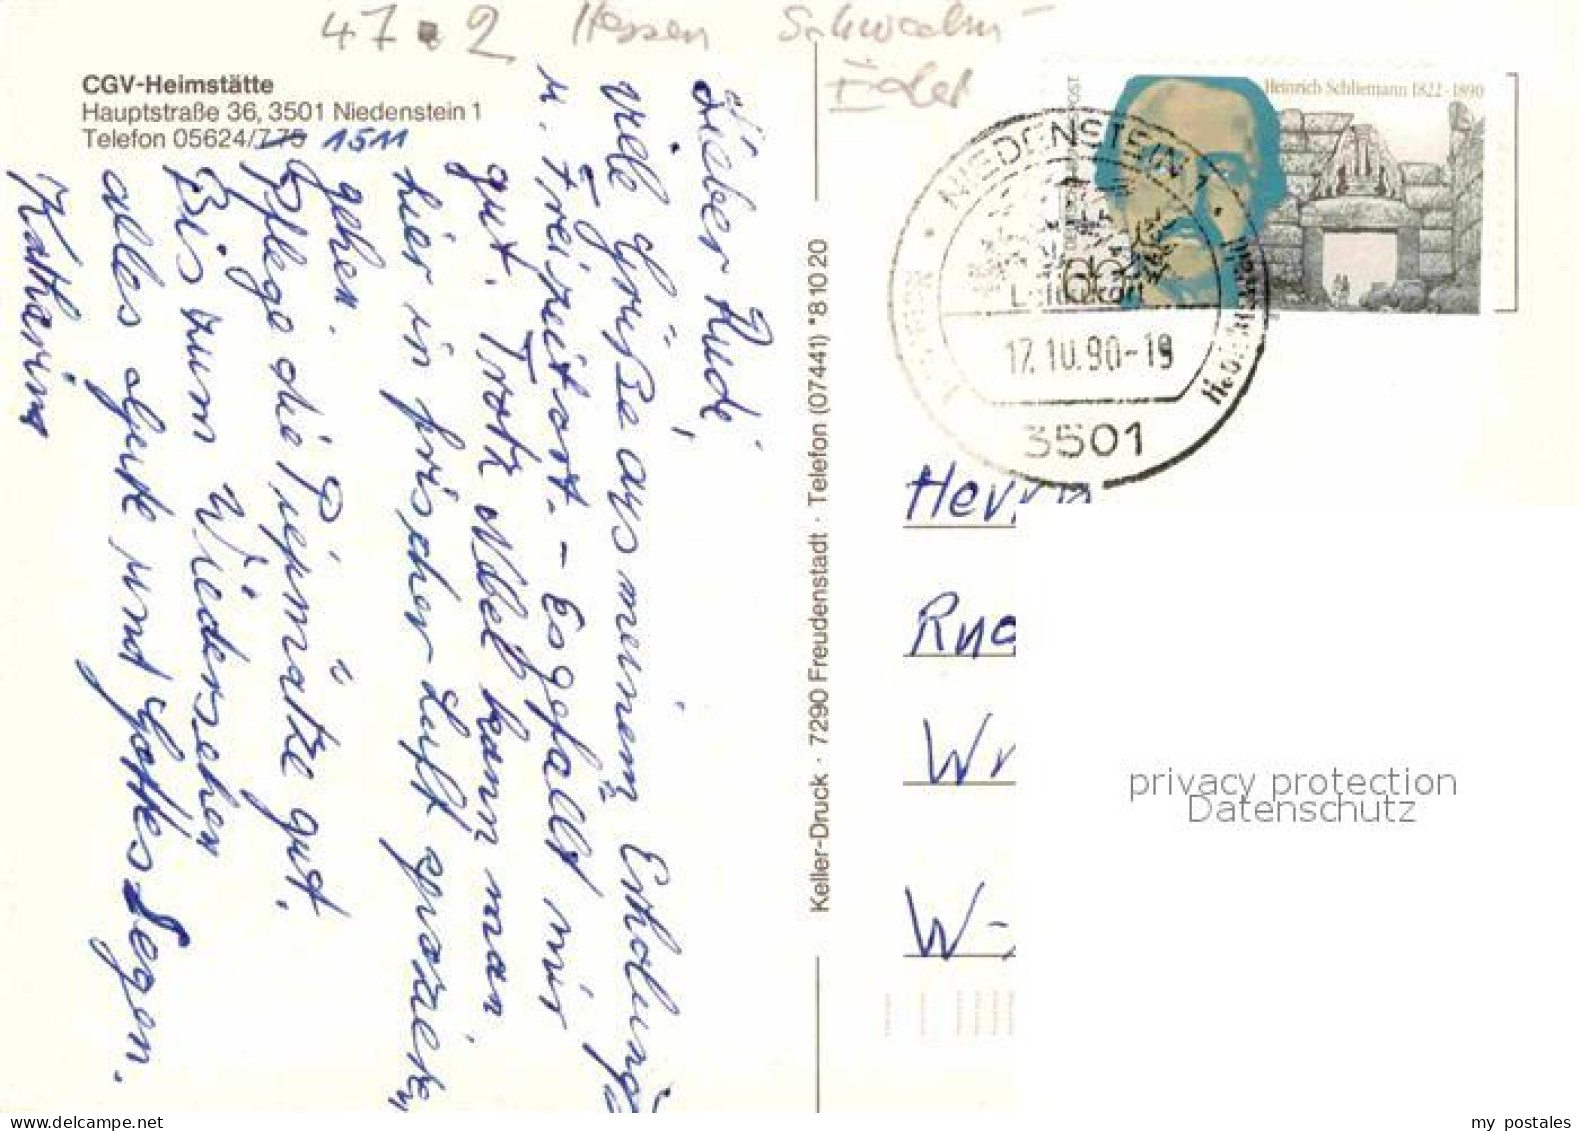 47.2 Hessen Schwalm-
Eder
CGV-Heimstätte
Hauptstraße 36, 3501 Niedenstein 1
Telefon 05624/775 1511
Lieber Rudi,
viele Grüße aus meinem Erholungs-
u. Freizeitort. - Es gefällt mir
gut. Trotz Nebel kann man
hier in frischer Luft spazieren
gehen.
Pflege die Piepmätze gut.
Bis zum Wiedersehen
alles Gute und Gottes Segen.
Katharina
Keller-Druck · 7290 Freudenstadt · Telefon (07441) *81020
Heinrich Schliemann 1822-1890
POST
65
NIEDENSTEIN 1
Luftkurort
17.10.90-19
3501
Herrn
W-
privacy protection
Datenschutz
my postales